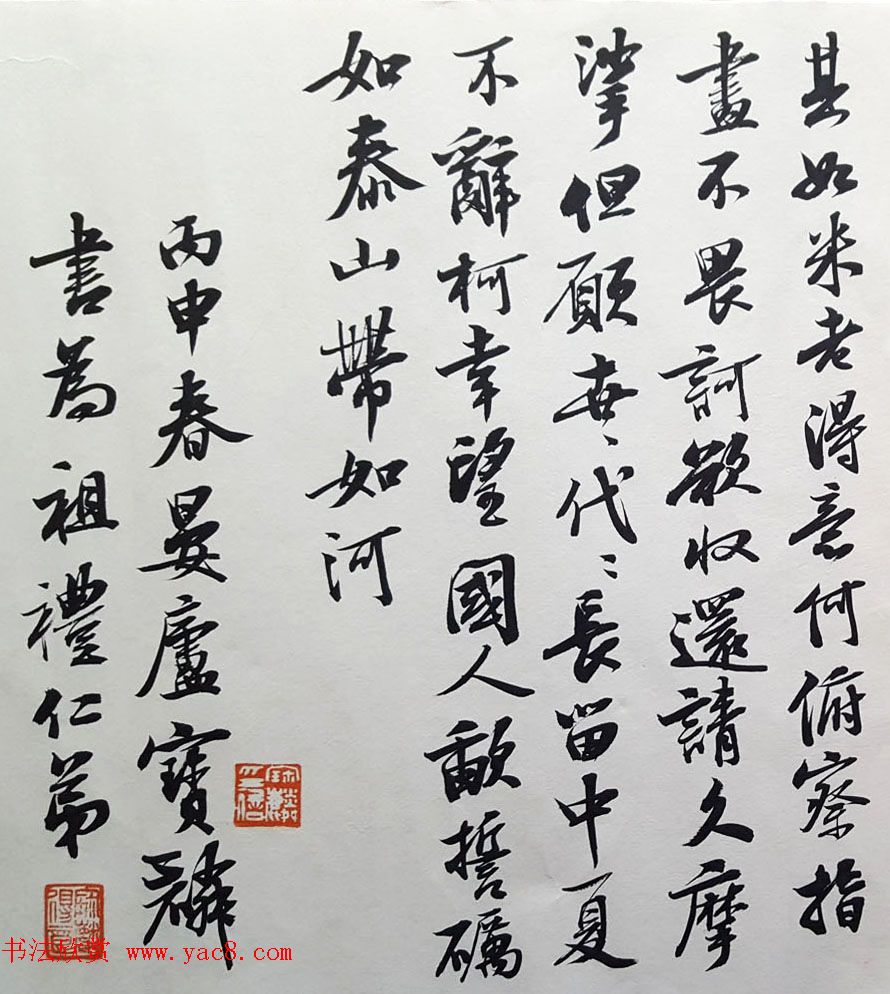 其如米老得意何俯察指
畫不畏訶欲收還請久摩
挲但願世〻代〻長留中夏
不辭柯幸望國人歃誓礪
如泰山帶如河
丙申春晏廬寶麟
書為祖禮仁弟
书法欣赏 www.yac8.com